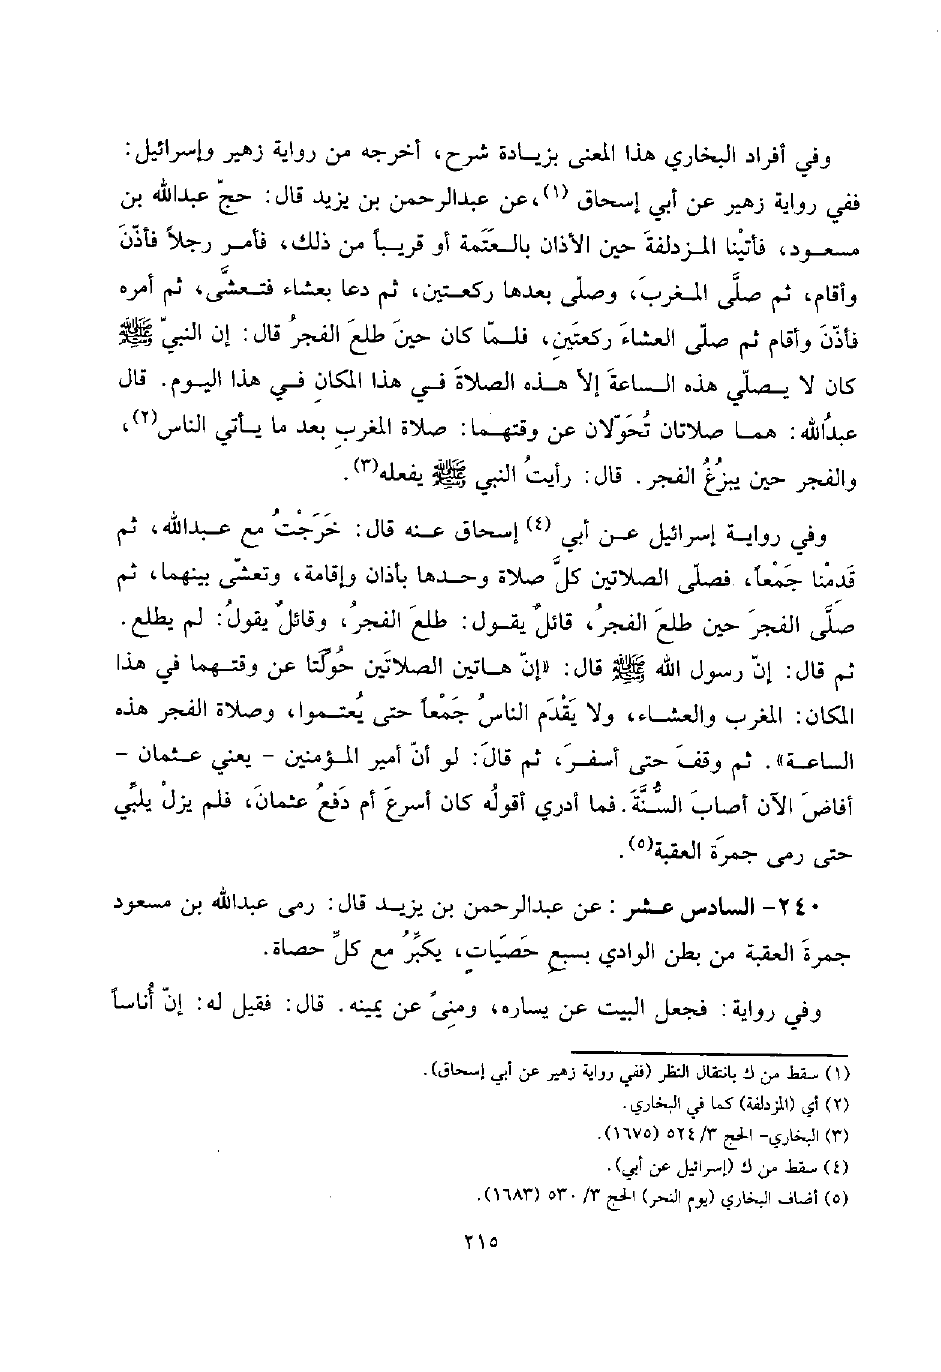 وفي أفراد البخاري هذا المعنى بزيادة شرح، أخرجه من رواية زهير وإسرائيل:
ففي رواية زهير عن أبي إسحاق (١)، عن عبدالرحمن بن يزيد قال: حجّ عبدالله بن
مسعود، فأتَيْنا المزدلفةَ حين الأذان بالعَتَمة أو قريباً من ذلك، فأمر رجلاً فأذّنَ
وأقام، ثم صلَّى المغربَ، وصلّى بعدها ركعتين، ثم دعا بعشاء فتعشَّى، ثم أمره
فأذّنَ وأقام ثم صلّى العشاءَ ركعتَين، فلمّا كان حينَ طلعَ الفجرُ قال: إن النبيّ ﷺ
كان لا يصلّي هذه الساعةَ إلاّ هذه الصلاةَ في هذا المكانِ في هذا اليوم. قال
عبدُالله: هما صلاتان تُحَوّلان عن وقتهما: صلاة المغرب بعد ما يأتي الناس(٢)،
والفجر حين يبزُغُ الفجر. قال: رأيتُ النبي ﷺ يفعله(٣).
وفي رواية إسرائيل عن أبي (٤) إسحاق عنه قال: خَرَجْتُ مع عبدالله، ثم
قَدمْنا جَمْعاً، فصلّى الصلاتين كلَّ صلاة وحدها بأذان وإقامة، وتعشّى بينهما، ثم
صلَّى الفجرَ حين طلعَ الفجرُ، قائلٌ يقول: طلعَ الفجرُ، وقائلٌ يقولُ: لم يطلع.
ثم قال: إنّ رسول الله ﷺ قال: «إنّ هاتين الصلاتَين حُوِّلَتا عن وقتهما في هذا
المكان: المغرب والعشاء، ولا يَقْدَم الناسُ جَمْعاً حتى يُعتموا، وصلاة الفجر هذه
الساعة». ثم وقفَ حتى أسفرَ، ثم قالَ: لو أنّ أمير المؤمنين - يعني عثمان -
أفاضَ الآن أصابَ السُّنَّةَ. فما أدري أقولُه كان أسرعَ أم دَفعُ عثمانَ، فلم يزلْ يلبِّي
حتى رمى جمرَة العقبة(٥).
٢٤٠- السادس عشر: عن عبدالرحمن بن يزيد قال: رمى عبدالله بن مسعود
جمرةَ العقبة من بطن الوادي بسبعِ حَصَيَاتٍ، يكبِّرُ مع كلِّ حصاة.
وفي رواية: فجعل البيت عن يساره، ومنىً عن يمينه. قال: فقيل له: إنّ أُناساً
(١) سقط من ك بانتقال النظر (ففي رواية زهير عن أبي إسحاق).
(٢) أي (المزدلفة) كما في البخاري.
(٣) البخاري- الحج ٣/ ٥٢٤ (١٦٧٥).
(٤) سقط من ك (إسرائيل عن أبي).
(٥) أضاف البخاري (يوم النحر) الحج ٣/ ٥٣٠ (١٦٨٣).
٢١٥